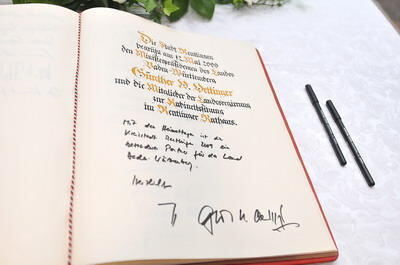 Die Stadt Reutlingen
begrüßt am 12. Mai 2009
den Ministerpräsidenten des Landes
Baden-Württemberg
Günther H. Oettinger
und die Mitglieder der Landesregierung
zur Kabinettssitzung
im Reutlinger Rathaus.
Mit den Heimattagen ist die
2009 ein
Partner für das Land
Baden-Württemberg.